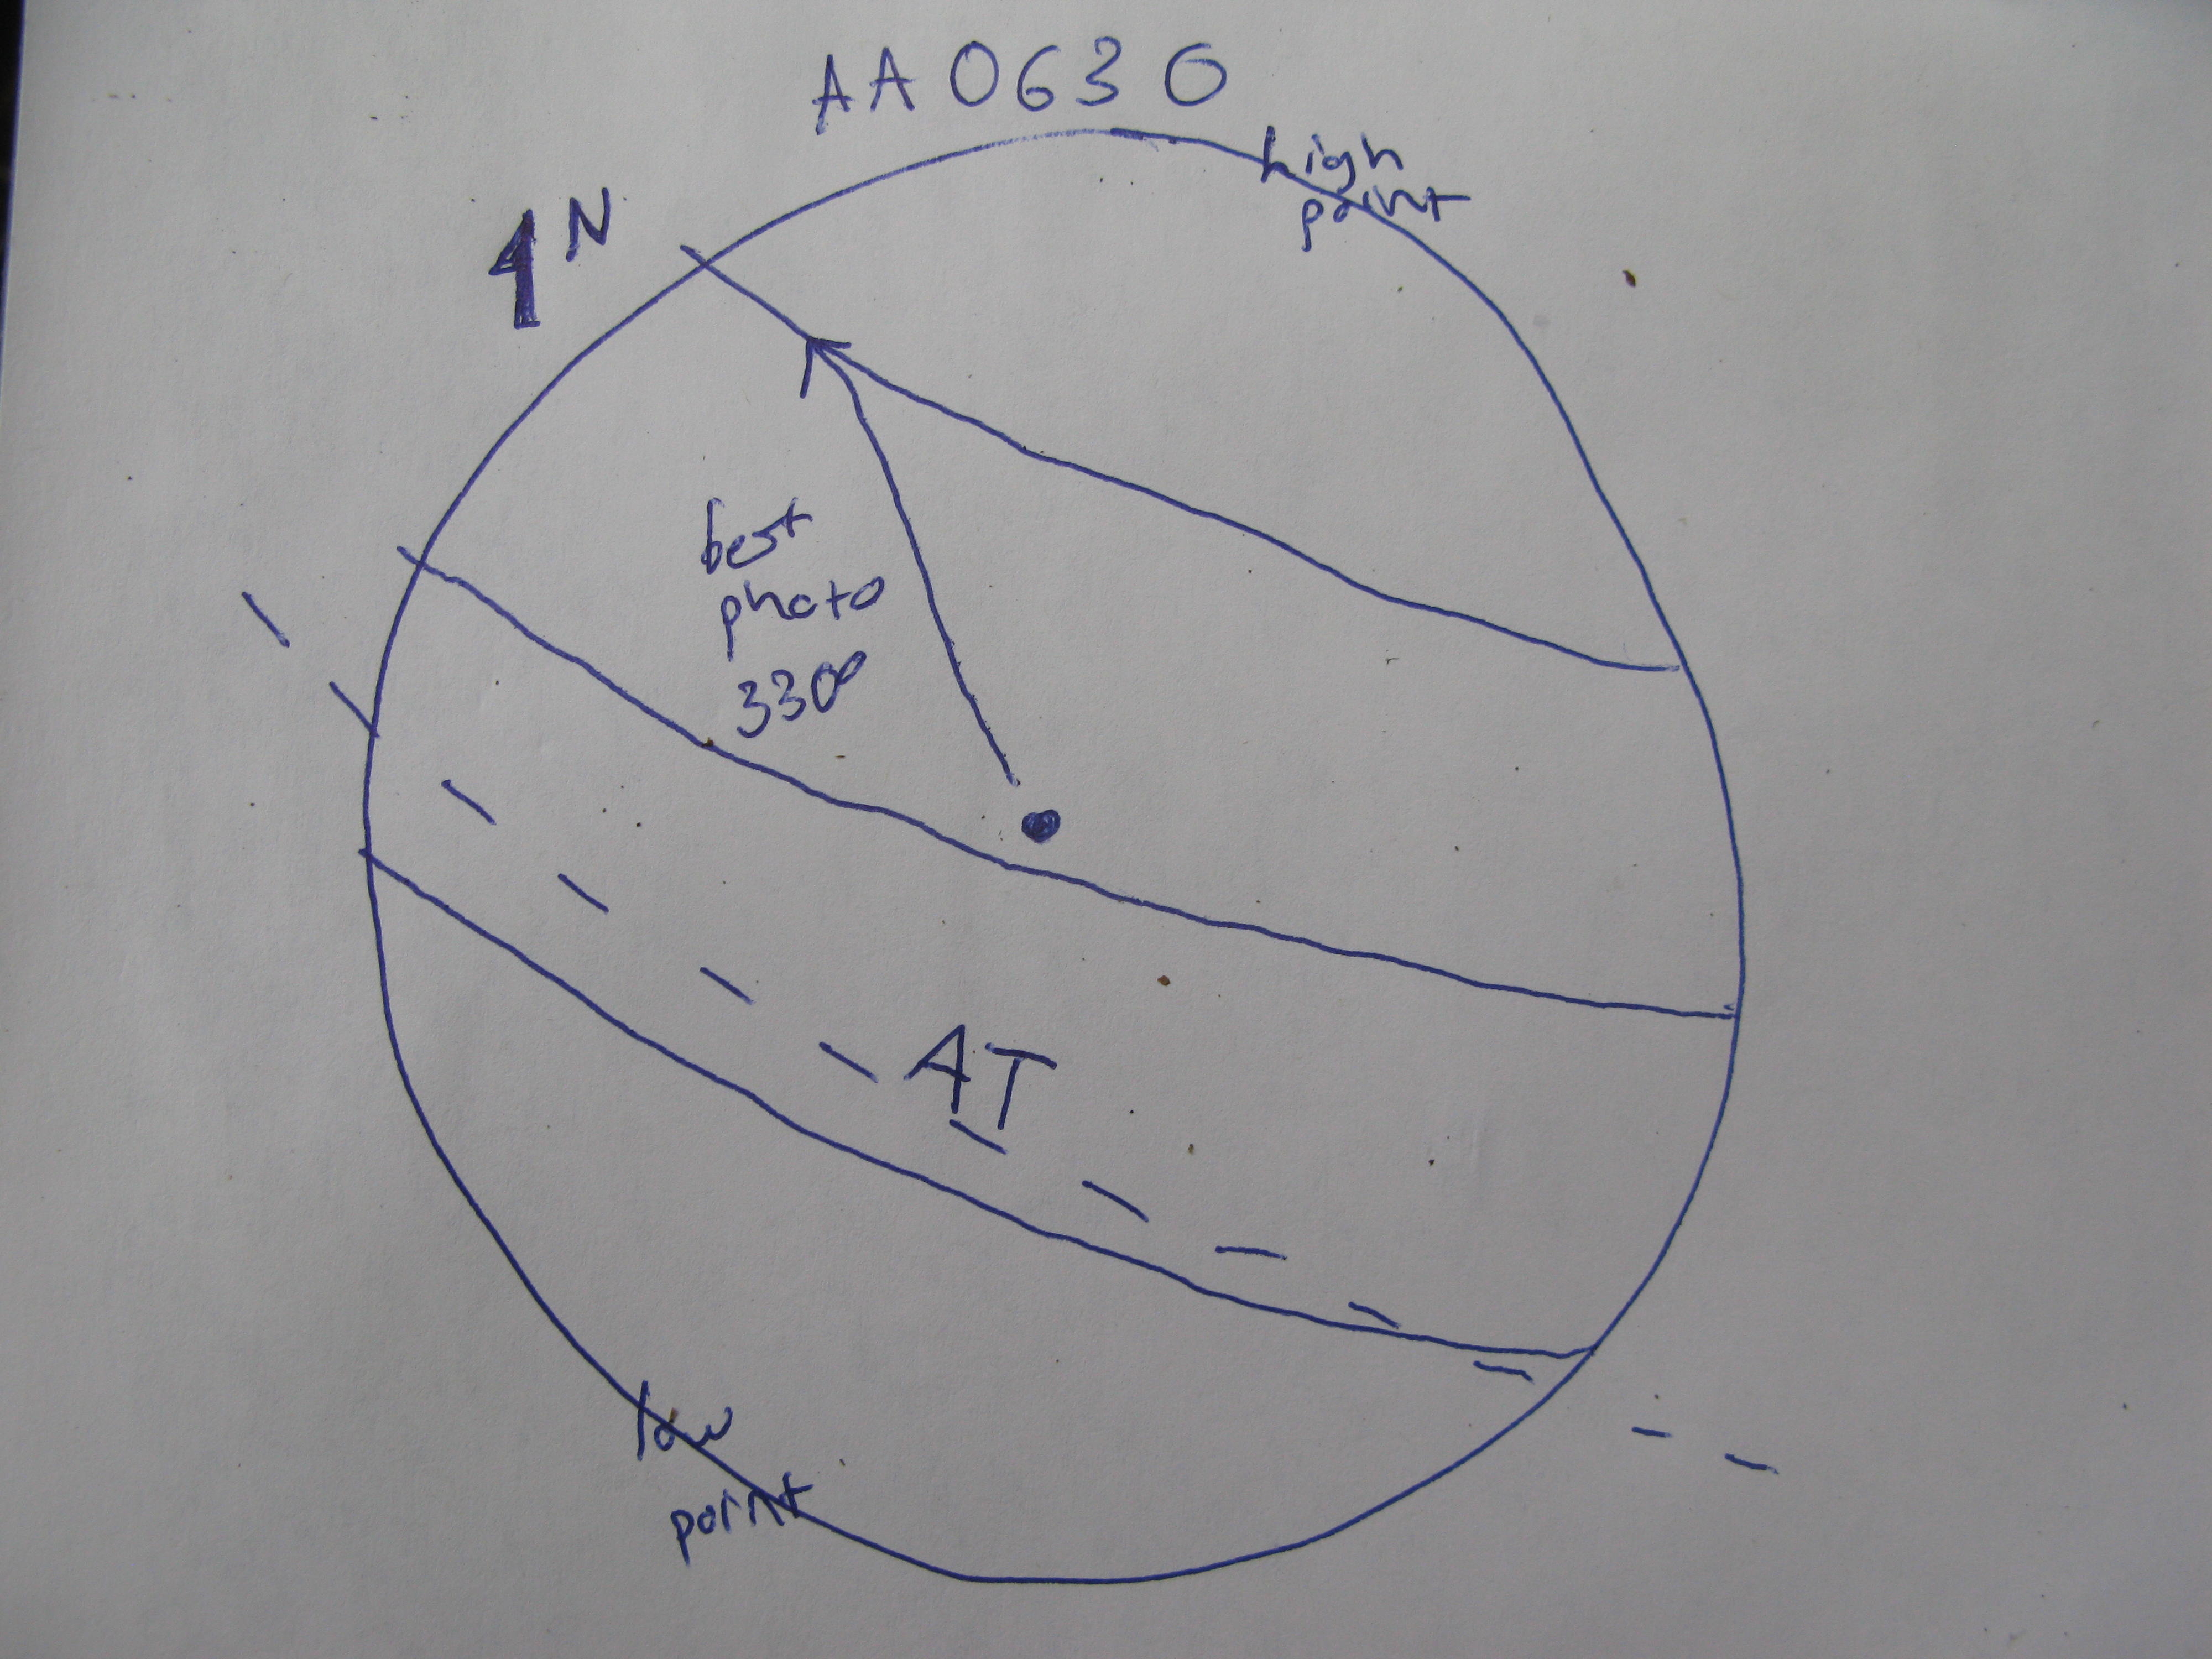 AA0630
high
point
N
best
photo
330°
AT
low
point